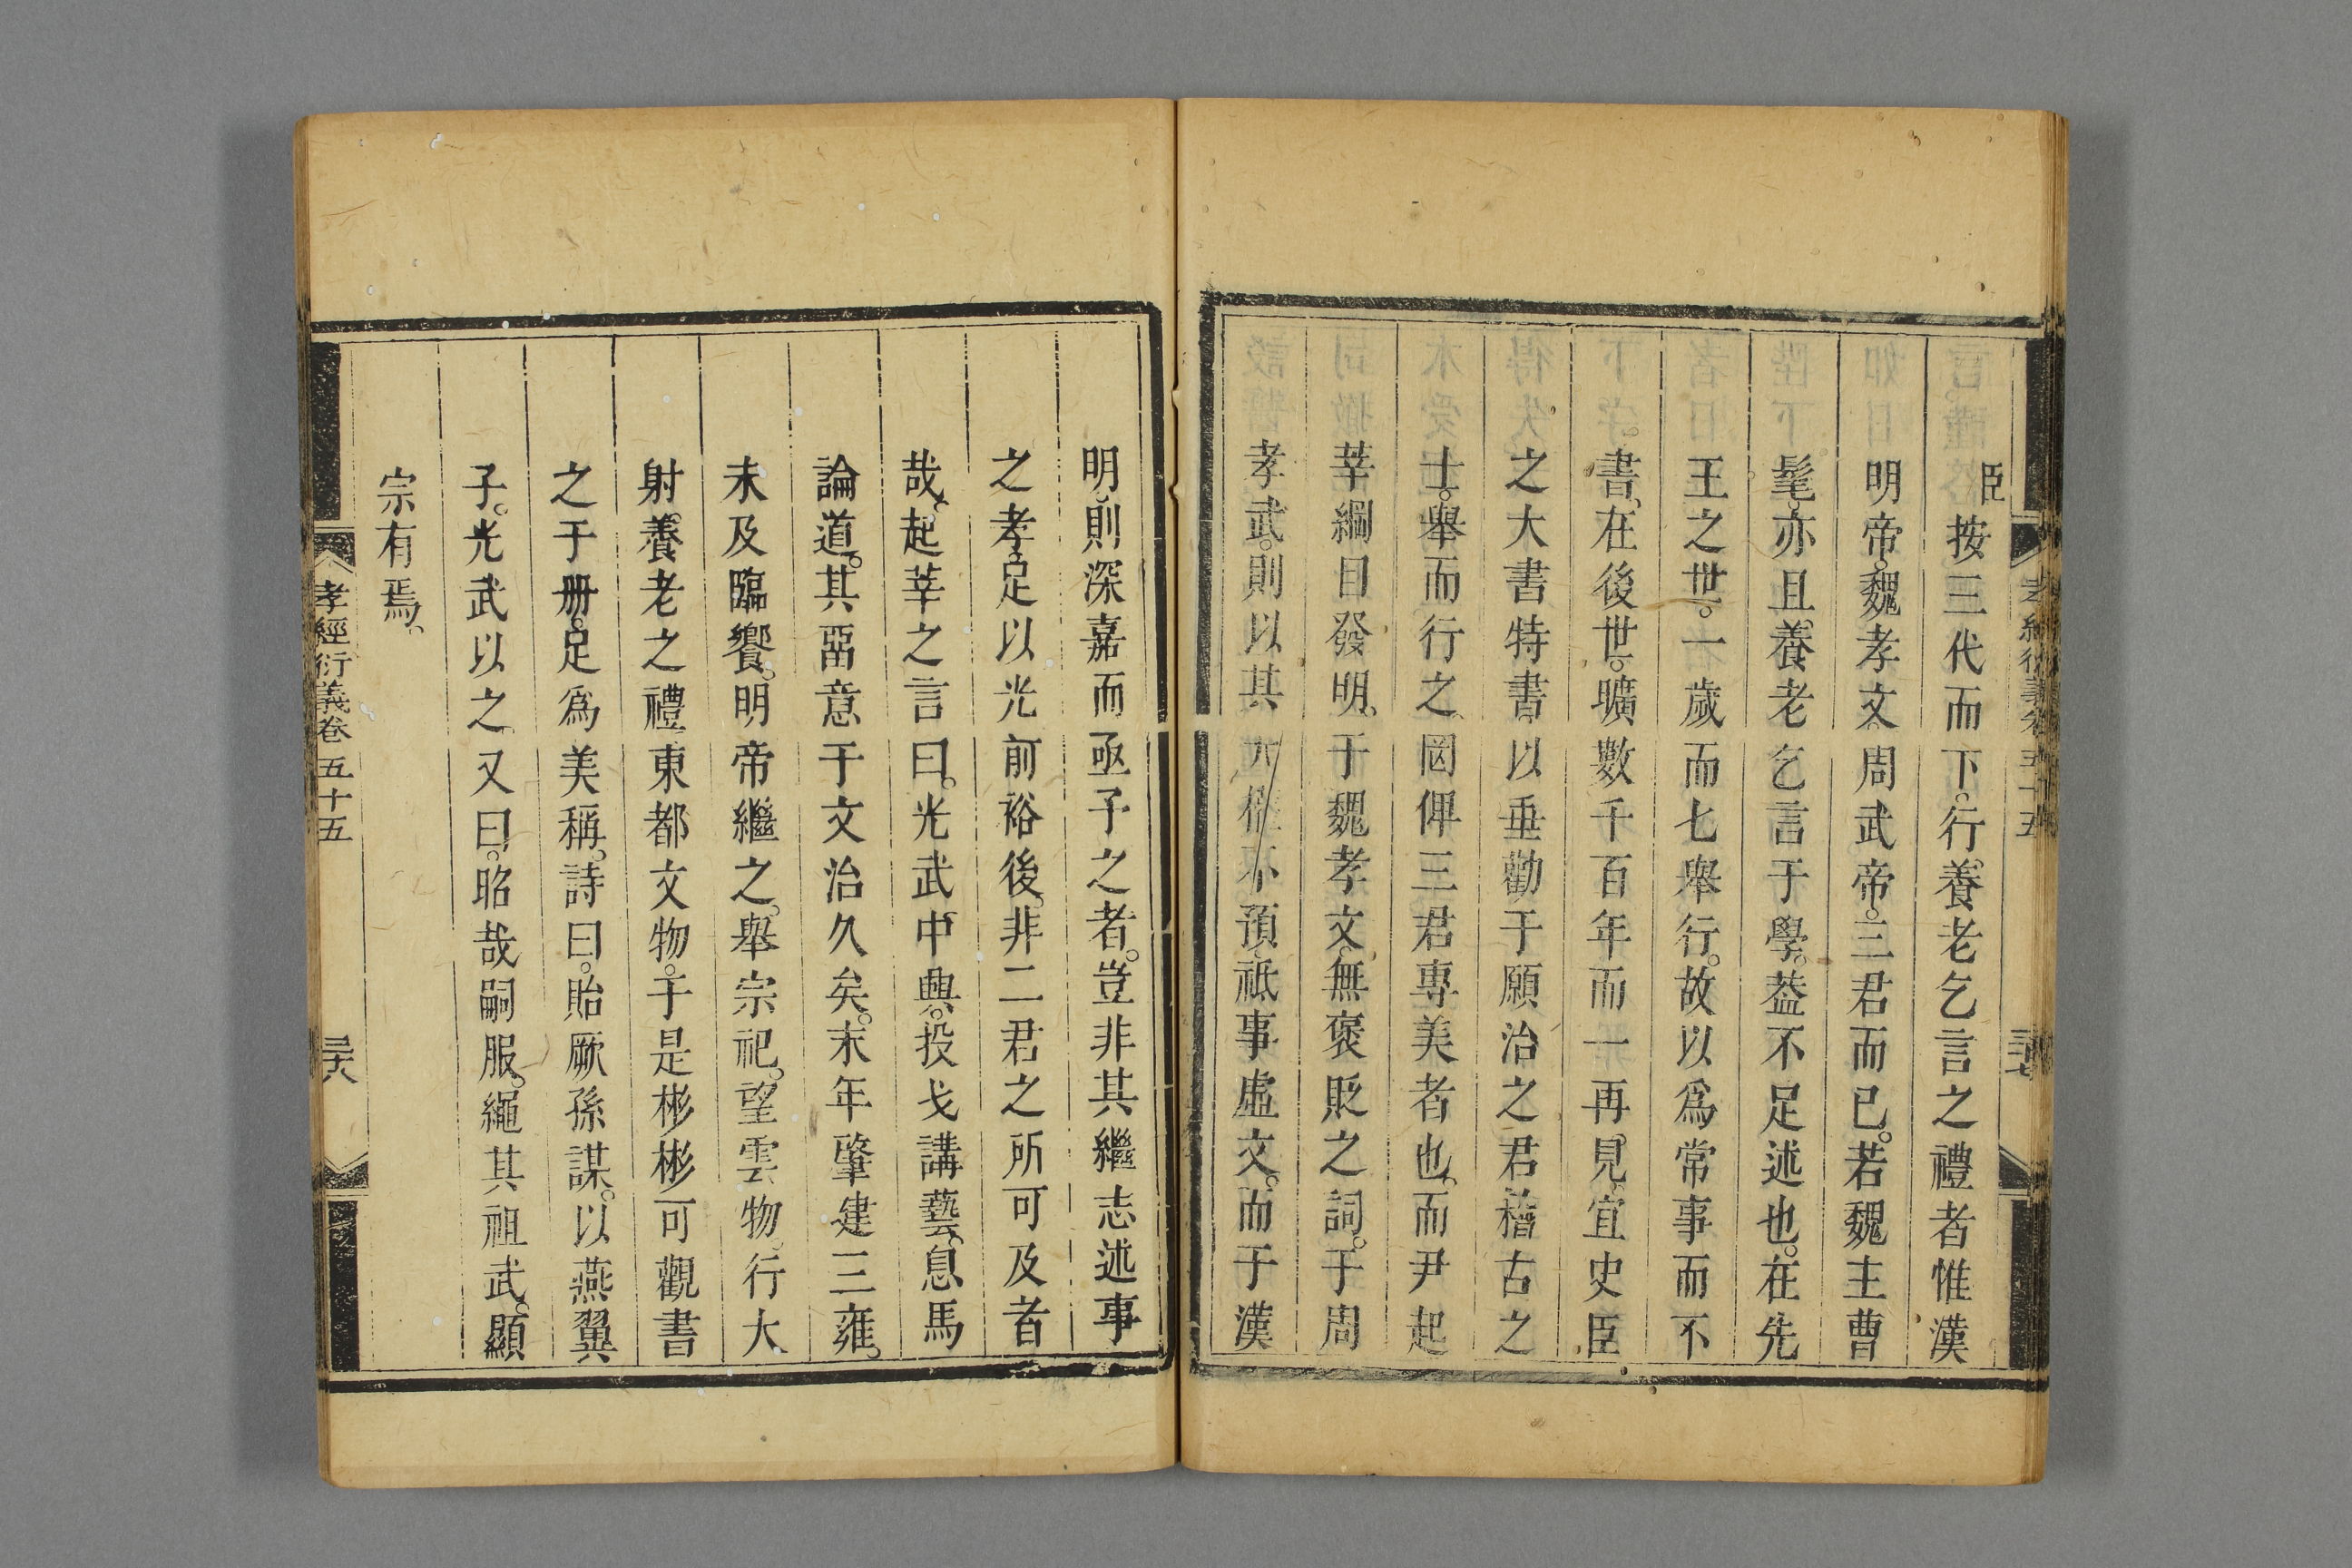 臣按三代而下。行養老乞言之禮者惟漢
明帝。魏孝文。周武帝。三君而已。若魏主曹
髦。亦且養老乞言于學。葢不足述也。在先
王之世。一歲而七舉行。故以爲常事而不
書。在後世。曠數千百年而一再見。宜史臣
之大書特書。以垂勸于願治之君稽古之
士。舉而行之。罔俾三君專美者也。而尹起
莘綱目發明。于魏孝文。無褒貶之詞。于周
孝武。則以其不預。祗事虛文。而于漢
孝經衍義卷五十五
明。則深嘉而亟予之者。豈非其繼志述事
之孝。足以光前裕後。非二君之所可及者
哉。起莘之言曰。光武中興。投戈講藝。息馬
論道。其畱意于文治久矣。末年肇建三雍。
未及臨饗。明帝繼之。舉宗祀。望雲物。行大
射。養老之禮。東都文物。于是彬彬可觀。書
之于册。足爲美稱。詩曰。貽厥孫謀。以燕翼
子。光武以之。又曰。昭哉嗣服。繩其祖武。顯
宗有焉。
孝經衍義卷五十五
三六